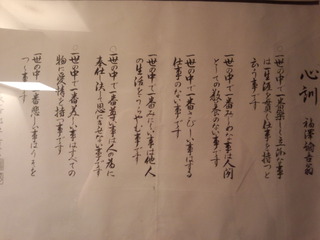 心訓 福澤諭吉翁
一世の中で一番楽しく立派な事
は一生涯を貫く仕事を持つと
云う事です
一世の中で一番みじめな事は人間
としての教養のない事です
一世の中で一番さびしい事はする
仕事のない事です
一世の中で一番みにくい事は他人
の生活をうらやむ事です
一世の中で一番尊い事は人の為に
奉仕し決して恩にきせない事です
一世の中で一番美しい事はすべての
物に愛情を持つ事です
一世の中で一番悲しい事はうそを
つく事です